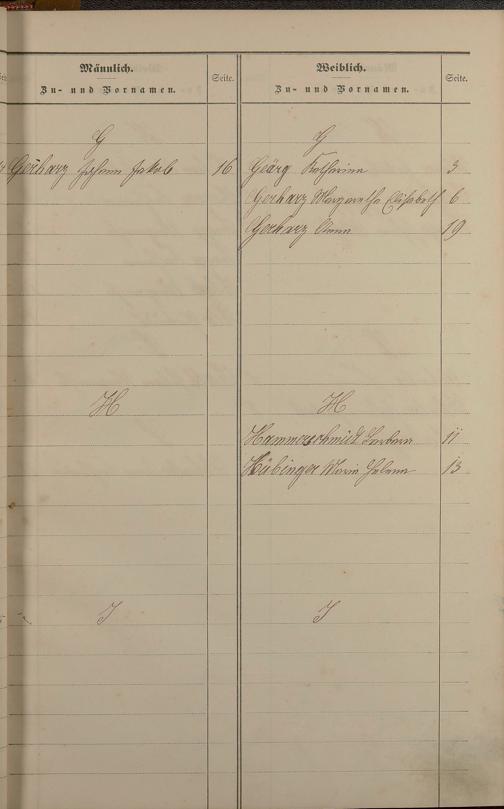 Männlich.
Zu- und Vornamen.
Seite.
G
Gerharz Johann Jakob 16
H
I
Weiblich.
Zu- und Vornamen.
Seite.
G
Geörg Katharina 3
Gerharz Margaretha Elisabeth 6
Gerharz Anna 19
H
Hammerschmidt Barbara 11
Hübinger Maria Helena 13
I